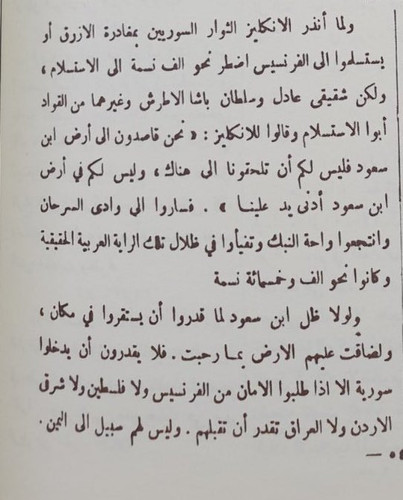 ولما أنذر الانكليز الثوار السوريين بمغادرة الازرق أو
يستسلموا الى الفرنسيس اضطر نحو الف نسمة الى الاستسلام ،
ولكن شقيقى عادل وسلطان باشا الاطرش وغيرهما من القواد
أبوا الاستسلام وقالوا للانكليز : « نحن قاصدون الى أرض ابن
سعود فليس لكم أن تلحقونا الى هناك ، وليس لكم في أرض
ابن سعود أدنى يد علينا » . فساروا الى وادى السرحان
وانتجعوا واحة النبك وتفيأوا في ظلال تلك الراية العربية الحقيقية
وكانوا نحو الف وخمسمائة نسمة
ولولا ظل ابن سعود لما قدروا أن يستقروا في مكان ،
ولضاقت عليهم الارض بما رحبت . فلا يقدرون أن يدخلوا
سورية الا اذا طلبوا الامان من الفرنسيس ولا فلسطين ولا شرقى
الاردن ولا العراق تقدر أن تقبلهم . وليس لهم سبيل الى اليمن .